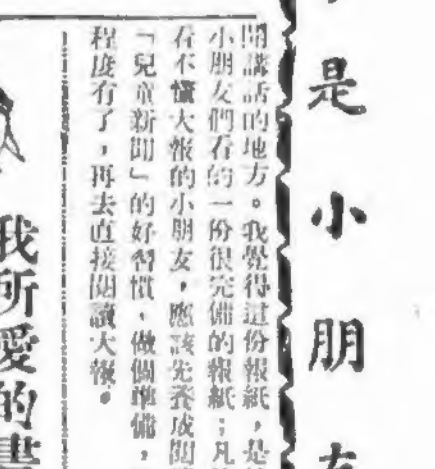 是小朋友
開講話的地方。我覺得這份報紙,是
小朋友們看的一份很完備的報紙;凡
看不懂大報的小朋友,應該先養成閱
「兒童新聞」的好習慣,做個準備,
程度有了,再去直接閱讀大報。
我所愛的書